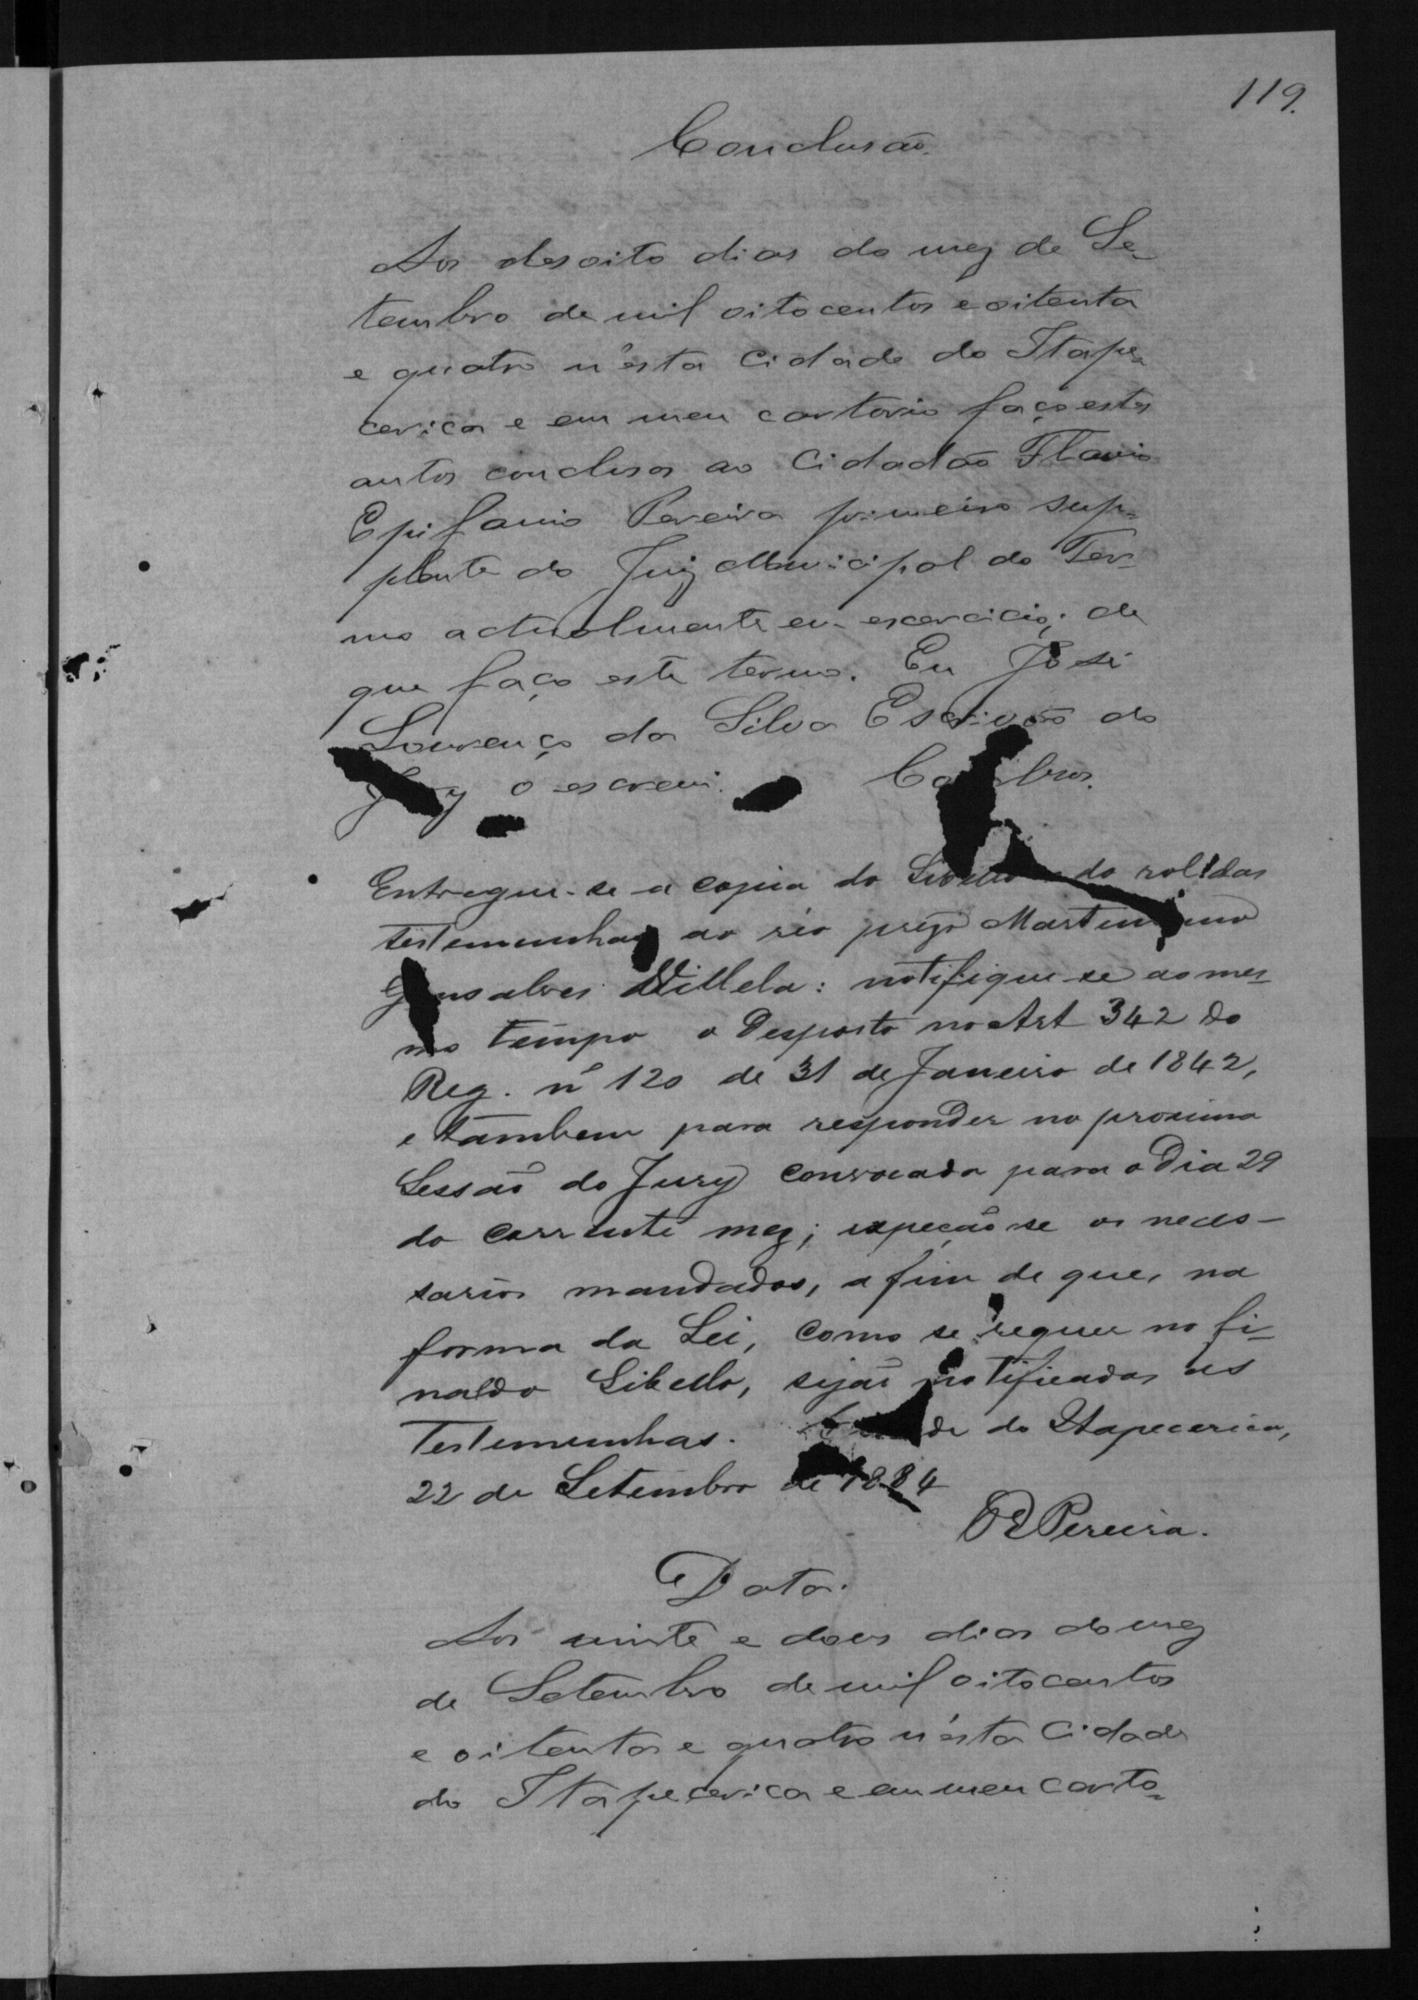 119.
Conclusão.
Aos desoito dias do mez de Se-
tembro de mil oitocentos e oitenta
e quatro n'esta Cidade do Itape-
cerica e em meu cartorio faço estes
autos conclusos ao Cidadão Flavio
Epifanio Pereira primeiro sup-
plente do Juiz Municipal do Ter-
mo actualmente em excercicio; de
que faço este termo. Eu José
Lourenço da Silva Escrivão do
Jury o escrevi. Conclusos.
Entregue-se a copia do Libello e do rol das
testemunhas ao réo prezo Martiniano
Gonsalves Villela: notifique-se ao mes-
mo tempo o Desposto no Art 342 do
Reg. nº 120 de 31 de Janeiro de 1842,
e tambem para responder na proxima
Sessão do Jury convocada para o Dia 29
do corrente mez; expeção-se os neces-
sarios mandados, a fim de que, na
forma da Lei, como se requer no fi-
nal do Libello, sejão notificadas as
Testemunhas. Cidade do Itapecerica,
22 de Setembro de 1884
Pereira.
Data.
Aos vinte e dous dias do mez
de Setembro de mil oitocentos
e oitenta e quatro n'esta Cidade
do Itapecerica e em meu carto-